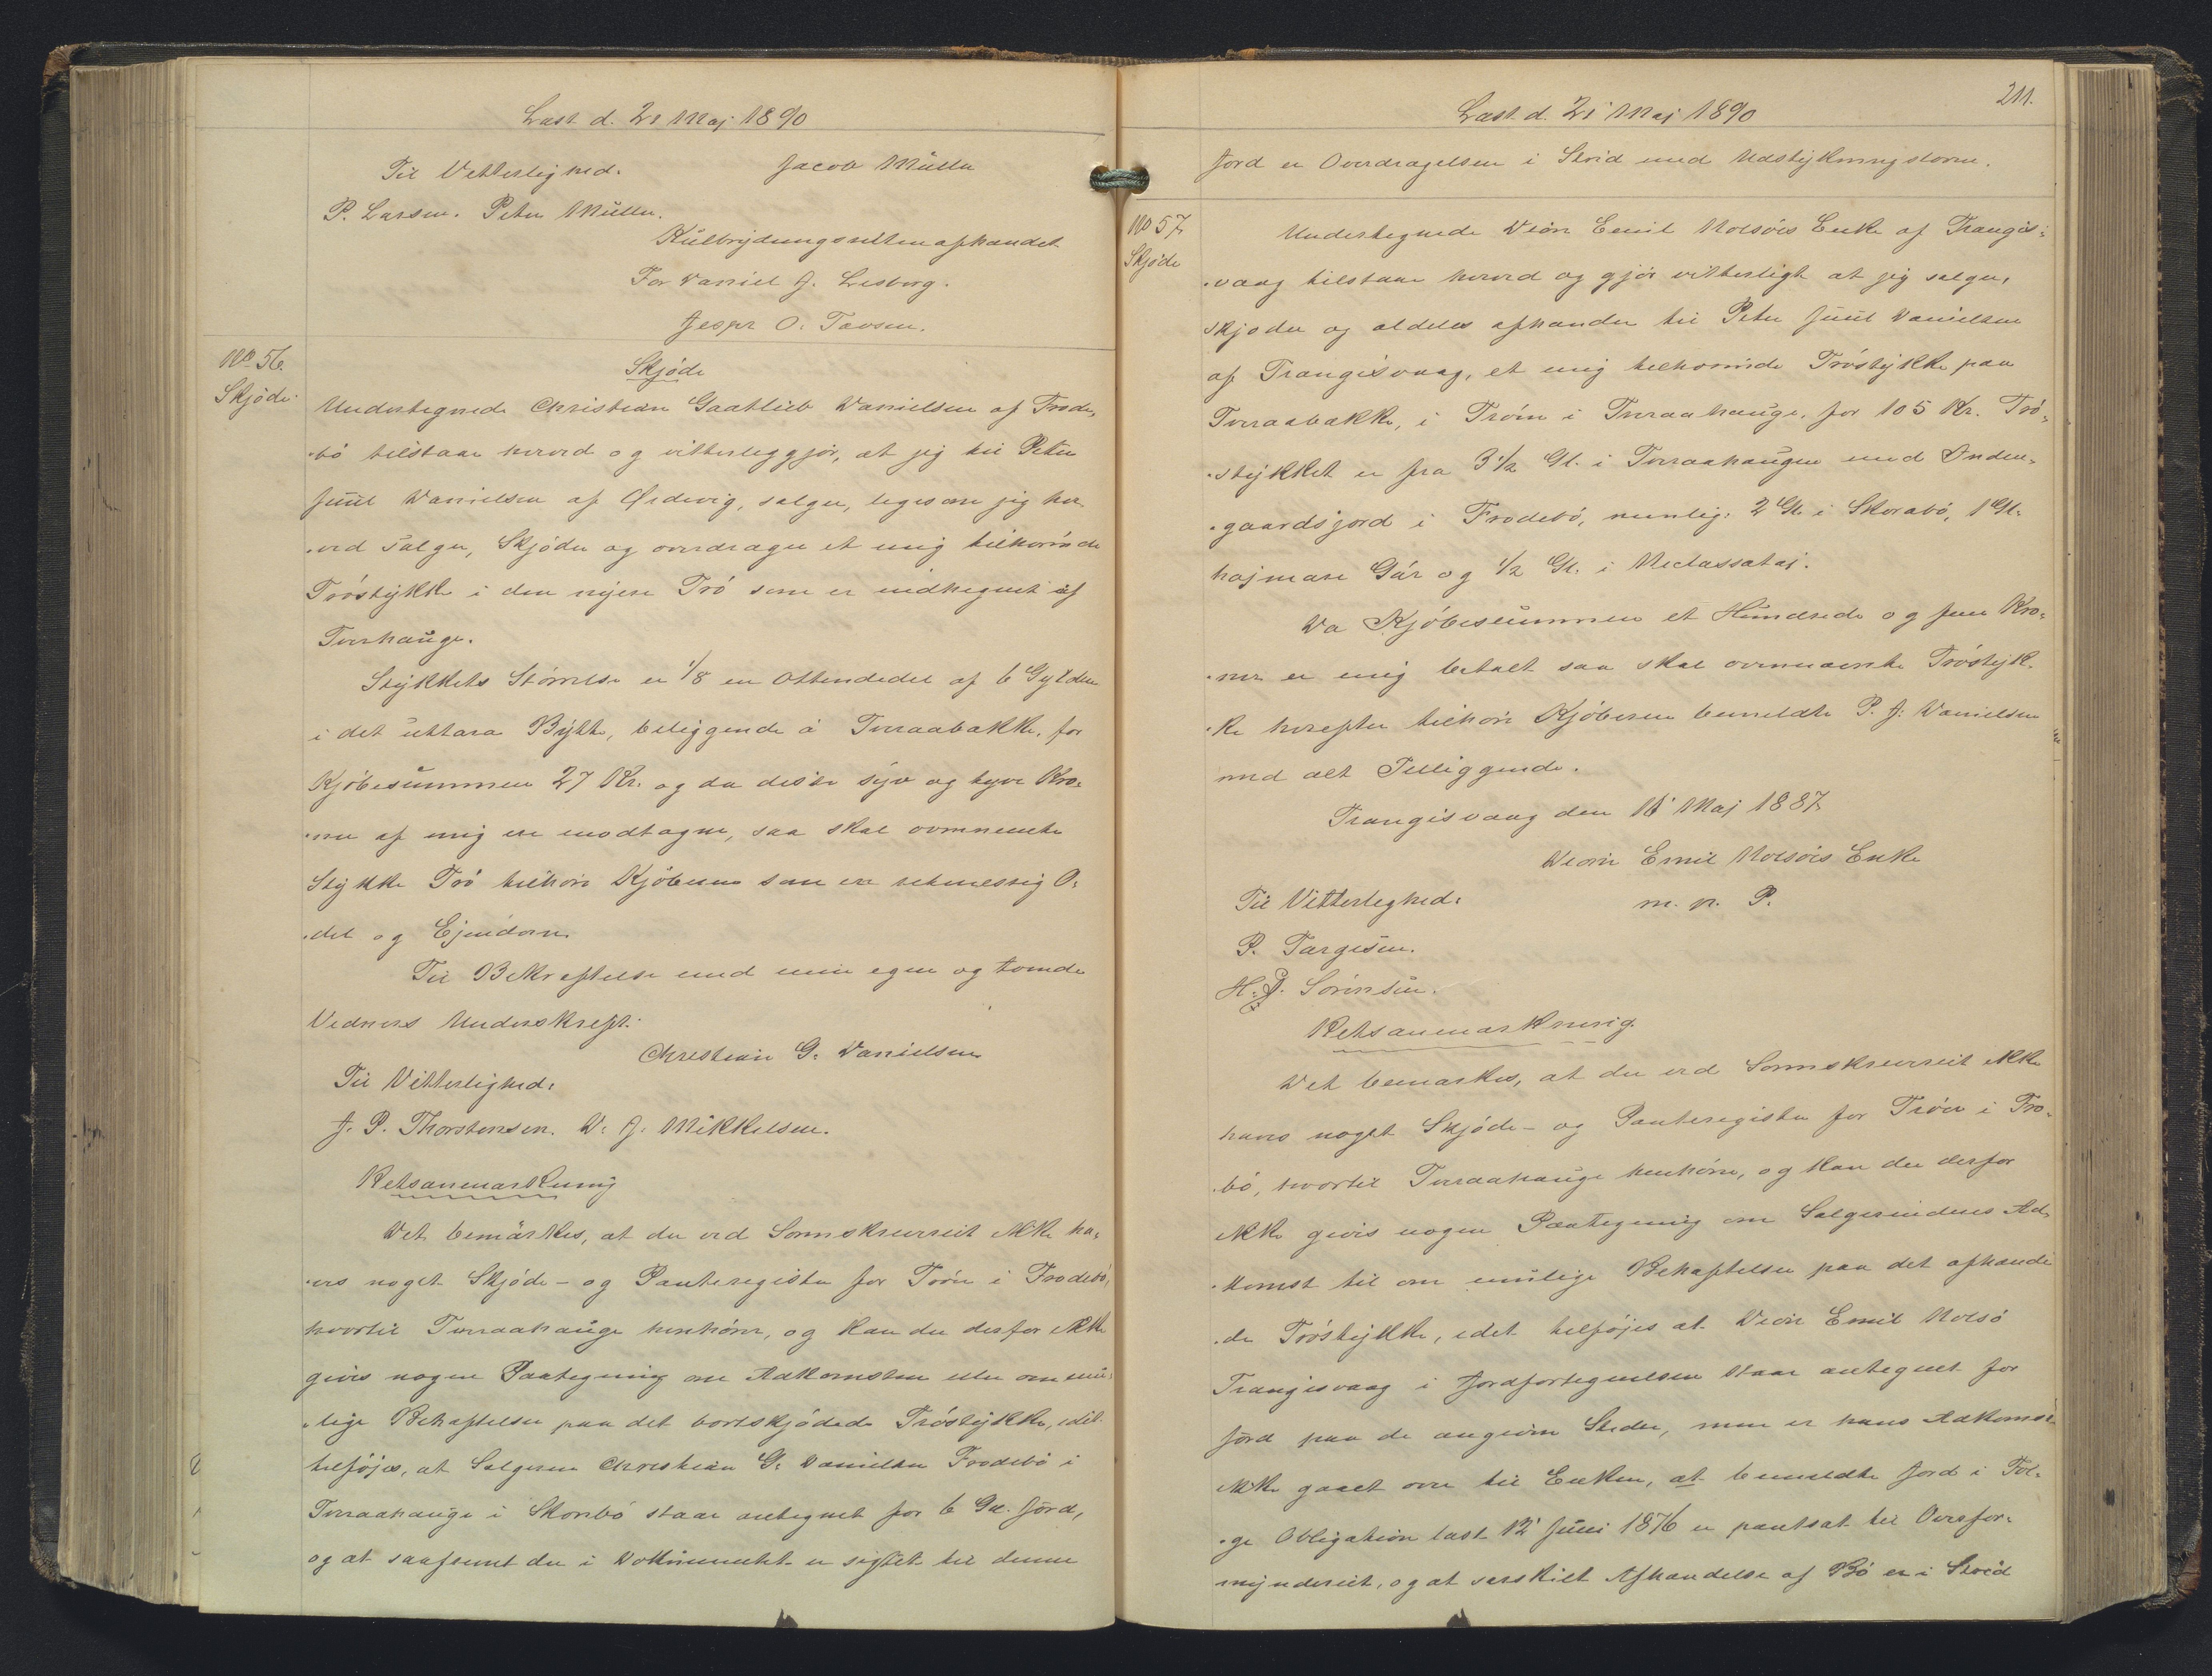 Læst d. 21 Maj 1890
Til Vitterlighed. Jacob Müller
P. Larsen. Peter Müller.
Kulbrydningsretten afhændet
For Daniel J. Lisberg.
Jesper O. Tavsen.
No 56.
Skjöde.
Skjöde
Undertegnede Christian Gaatlieb Danielsen af Frode-
-bö tilstaar herved og vitterliggjör, at jeg til Peter
Juul Danielsen af Ördevig, sælger, ligesom jeg her-
-ved sælger, Skjöder og overdrager et mig tilhörende
Tröstÿkke i den nyere Trö som er indhegnet af
Tverhauge.
Stÿkkets Störrelse er 1/8 en Ottendedel af 6 Gylden
i det uttara Bÿtte, beliggende á Tveraabakke, for
Kjöbesummen 27 Kr. og da disse syv og tyve Kro-
-ner af mig ere modtagne, saa skal ovennævnte
Stÿkke Trö tilhöre Kjöberen som en retmessig O-
-del og Ejendom.
Til Bekræftelse med min egen og tvende
Vidners Underskrift.
Christian G. Danielsen
Til Vitterlighed.
J. P. Thorstensen. D. J. Mikkelsen.
Retsanmærkning
Det bemärkes, at der ved Sorenskriveriet ikke ha-
-ves noget Skjöde- og Panteregister for Tröen i Frodebö,
hvortil Tveraahauge henhörer, og kan der derfor ikke
gives nogen Paategning om Adkomsten eller om mu-
-lige Behæftelser paa det bortskjödede Tröstÿkke, idet
tilföjes, at Sælgeren Christian G. Danielsen Frodebö i
Tveraahauge i Skorebö staar antegnet for 6 Gl. Jord,
og at saafremt der i Dokumentet er sigtet til denne
211.
Læst d. 21 Maj 1890
Jord er Overdragelsen i Strid med Udstykningsloven.
No 57.
Skjöde
Undertegnede Djön Emil Nolsöes Enke af Trangis-
-vaag tilstaar herved og gjör vitterligt at jeg sælger,
skjöder og aldeles afhænder til Peter Juul Danielsen
af Trangisvaag, et mig tilhörende Tröstÿkke paa
Tveraabakke, i Tröen i Tveraahauge, for 105 Kr. Trö-
-stykket er fra 3 1/2 Gl. i Tveraahaugen med Onden-
-gaardsjord i Frodebö, nemlig: 2 Gl. i Skorabö, 1 Gl.
hojmare Gár og 1/2 Gl. i
Da Kjöbesummen et Hundrede og fem Kro-
-ner er mig betalt saa skal ovennævnte Tröstÿk-
-ke herefter tilhöre Kjöberen bemeldte P. J. Danielsen
med alt Tilliggende.
Trangisvaag den 16 Maj 1887.
Djön Emil Nolsöes Enke
Til Vitterlighed. m. p. P.
P. Targesen.
H. D. Sörensen.
Retsanmærkning.
Det bemærkes, at der ved Sorenskriveriet ikke
haves noget Skjöde- og Panteregister for Tröen i Fro-
-bö, hvortil Tveraahauge henhörer, og kan der derfor
ikke gives nogen Paategning om Sælgerindens Ad-
-komst til om mulige Behæftelser paa det afhænde-
-de Tröstÿkke, idet tilföjes at Djön Emil Nolsö
Trangisvaag i Jordfortegnelsen staar antegnet for
Jord paa de angivne Steder, men er hans Adkomst
ikke gaaet over til Enken, at bemeldte Jord i Föl-
-ge Obligation læst 12 Juni 1876 er pantsat til Overfor-
-mynderiet, og at særskilt Afhændelse af Bö er i Strid